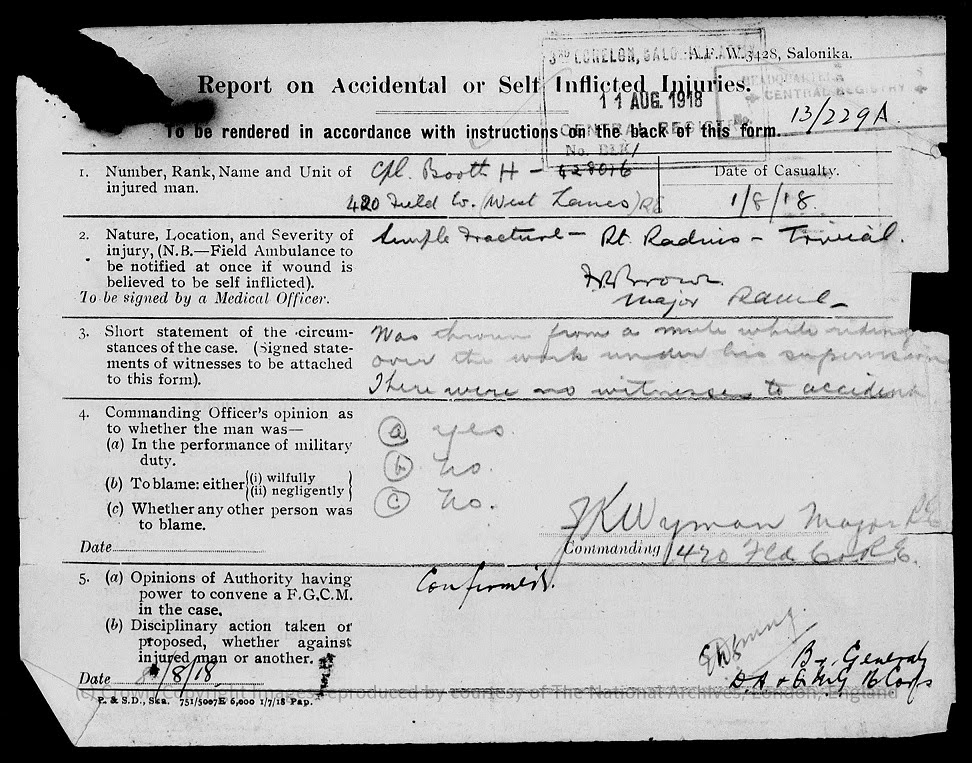 A.F.W.3428, Salonika.
11 AUG. 1918
HEADQUARTERS
CENTRAL REGISTRY
Report on Accidental or Self Inflicted Injuries.
CENTRAL REGISTRY
13/229A.
To be rendered in accordance with instructions on the back of this form.
1. Number, Rank, Name and Unit of injured man.
Cpl. Booth H - 428016
420 Field Co. (West Lancs) RE
Date of Casualty.
1/8/18.
2. Nature, Location, and Severity of
injury, (N.B.—Field Ambulance to
be notified at once if wound is
believed to be self inflicted).
To be signed by a Medical Officer.
Simple Fracture - Rt. Radius - Trivial.
Brown
Major RAMC
3. Short statement of the circum-
stances of the case. (Signed state-
ments of witnesses to be attached
to this form).
Was thrown from a mule while riding
over the work under his supervision
There were no witnesses to accident
4. Commanding Officer's opinion as
to whether the man was—
(a) In the performance of military
duty.
(b) To blame: either {(i) wilfully
(ii) negligently}
(c) Whether any other person was
to blame.
(a) yes.
(b) No.
(c) No.
Date
J K Wyman Major RE
Commanding 420 Fld Co RE.
5. (a) Opinions of Authority having
power to convene a F.G.C.M.
in the case.
(b) Disciplinary action taken or
proposed, whether against
injured man or another.
Date 8/8/18
Confirmed.
Br. General
16 Corps
(c) Crown Copyright Images reproduced by courtesy of The National Archives, London, England
P. & S.D., Ska. 751/5007E 6,000 1/7/18 Pap.